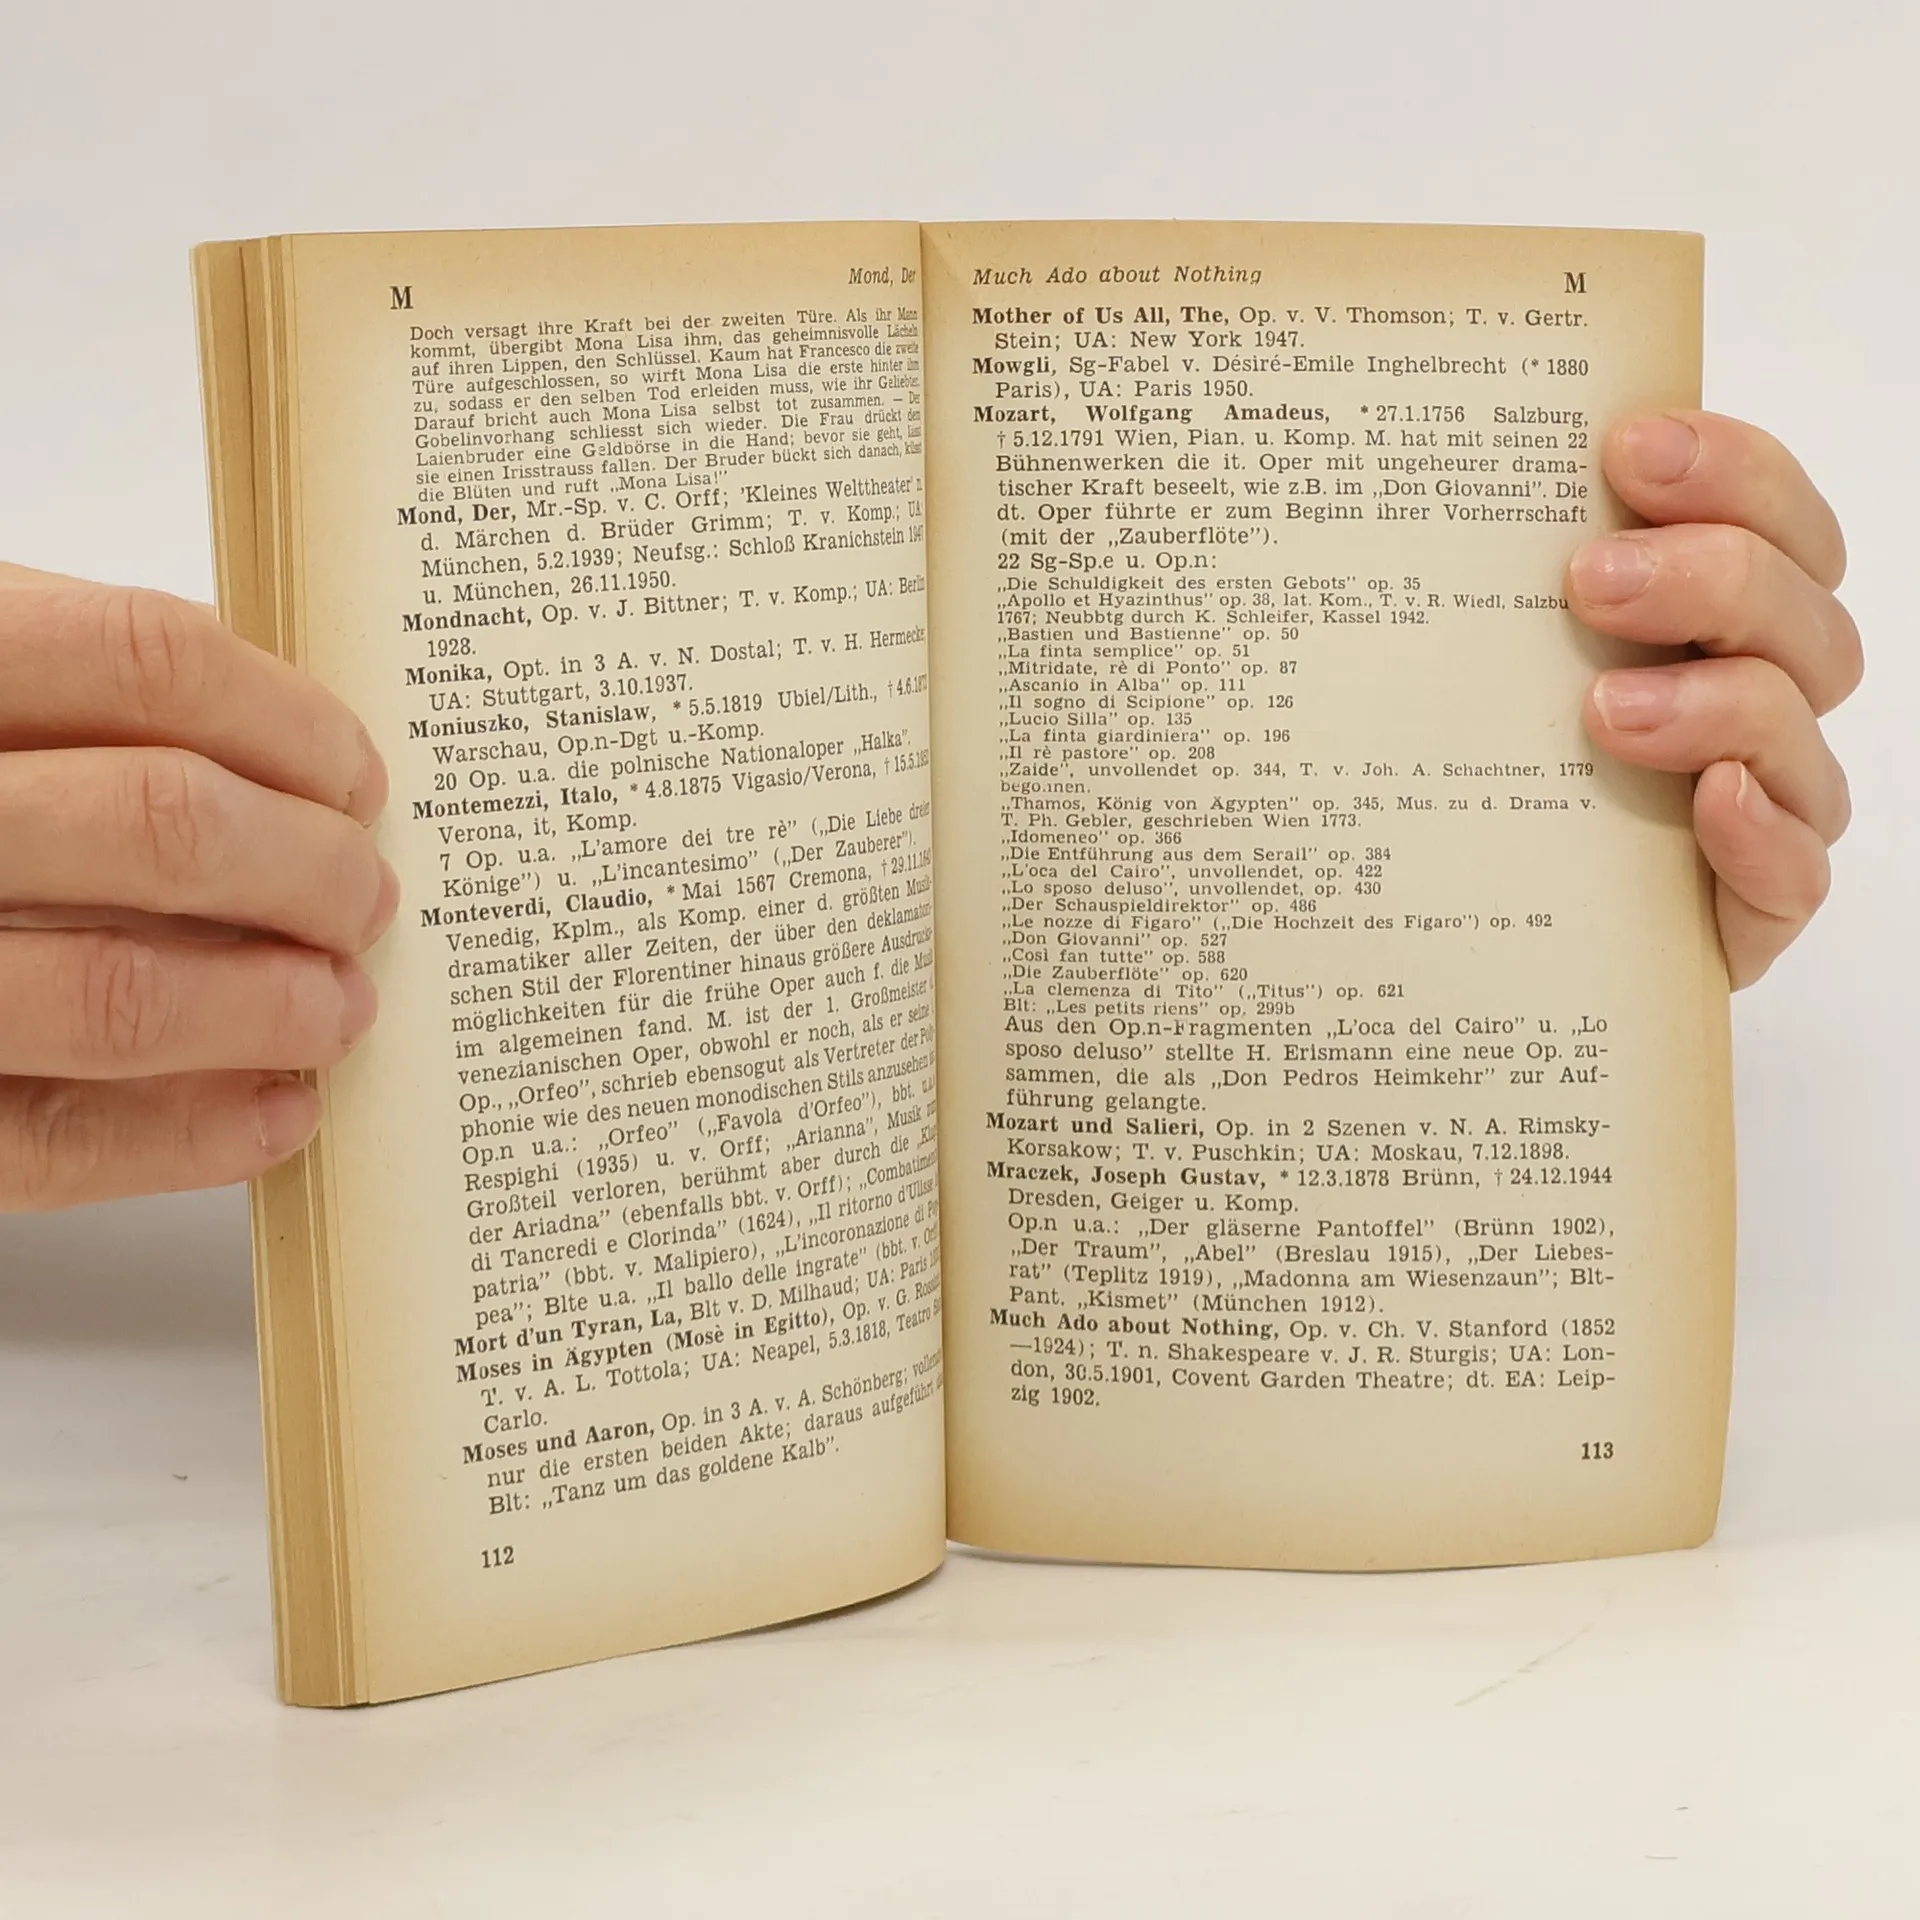 M
Mond, Der
Doch versagt ihre Kraft bei der zweiten Türe. Als ihr Mann
kommt, übergibt Mona Lisa ihm, das geheimnisvolle Lächeln
auf ihren Lippen, den Schlüssel. Kaum hat Francesco die zweite
Türe aufgeschlossen, so wirft Mona Lisa die erste hinter ihm
zu, sodass er den selben Tod erleiden muss, wie ihr Geliebter.
Darauf bricht auch Mona Lisa selbst tot zusammen. — Der
Gobelinvorhang schliesst sich wieder. Die Frau drückt dem
Laienbruder eine Geldbörse in die Hand; bevor sie geht, lässt
sie einen Irisstrauss fallen. Der Bruder bückt sich danach, küsst
die Blüten und ruft „Mona Lisa!”
Mond, Der, Mr.-Sp. v. C. Orff; 'Kleines Welttheater' n.
d. Märchen d. Brüder Grimm; T. v. Komp.; UA:
München, 5.2.1939; Neufsg.: Schloß Kranichstein 1947
u. München, 26.11.1950.
Mondnacht, Op. v. J. Bittner; T. v. Komp.; UA: Berlin
1928.
Monika, Opt. in 3 A. v. N. Dostal; T. v. H. Hermecke;
UA: Stuttgart, 3.10.1937.
Moniuszko, Stanislaw, * 5.5.1819 Ubiel/Lith., † 4.6.1872
Warschau, Op.n-Dgt u.-Komp.
20 Op. u.a. die polnische Nationaloper „Halka”.
Montemezzi, Italo, * 4.8.1875 Vigasio/Verona, † 15.5.1952
Verona, it, Komp.
7 Op. u.a. „L'amore dei tre rè” („Die Liebe dreier
Könige”) u. „L'incantesimo” („Der Zauberer”).
Monteverdi, Claudio, * Mai 1567 Cremona, † 29.11.1643
Venedig, Kplm., als Komp. einer d. größten Musik-
dramatiker aller Zeiten, der über den deklamatori-
schen Stil der Florentiner hinaus größere Ausdrucks-
möglichkeiten für die frühe Oper auch f. die Musik
im algemeinen fand. M. ist der 1. Großmeister d.
venezianischen Oper, obwohl er noch, als er seine 1.
Op., „Orfeo”, schrieb ebensogut als Vertreter der Poly-
phonie wie des neuen monodischen Stils anzusehen ist.
Op.n u.a.: „Orfeo” („Favola d'Orfeo”), bbt. u.a. v.
Respighi (1935) u. v. Orff; „Arianna”, Musik zum
Großteil verloren, berühmt aber durch die „Klage
der Ariadna” (ebenfalls bbt. v. Orff); „Combatimento
di Tancredi e Clorinda” (1624), „Il ritorno d'Ulisse in
patria” (bbt. v. Malipiero), „L'incoronazione di Pop-
pea”; Blte u.a. „Il ballo delle ingrate” (bbt. v. Orff).
Mort d'un Tyran, La, Blt v. D. Milhaud; UA: Paris
Moses in Ägypten (Mosè in Egitto), Op. v. G. Rossini;
T. v. A. L. Tottola; UA: Neapel, 5.3.1818, Teatro San
Carlo.
Moses und Aaron, Op. in 3 A. v. A. Schönberg; vollendet
nur die ersten beiden Akte; daraus aufgeführt das
Blt: „Tanz um das goldene Kalb”.
112
Much Ado about Nothing
M
Mother of Us All, The, Op. v. V. Thomson; T. v. Gertr.
Stein; UA: New York 1947.
Mowgli, Sg-Fabel v. Désiré-Emile Inghelbrecht (* 1880
Paris), UA: Paris 1950.
Mozart, Wolfgang Amadeus, * 27.1.1756 Salzburg,
† 5.12.1791 Wien, Pian. u. Komp. M. hat mit seinen 22
Bühnenwerken die it. Oper mit ungeheurer drama-
tischer Kraft beseelt, wie z.B. im „Don Giovanni”. Die
dt. Oper führte er zum Beginn ihrer Vorherrschaft
(mit der „Zauberflöte”).
22 Sg-Sp.e u. Op.n:
„Die Schuldigkeit des ersten Gebots” op. 35
„Apollo et Hyazinthus” op. 38, lat. Kom., T. v. R. Wiedl, Salzbu
1767; Neubbtg durch K. Schleifer, Kassel 1942.
„Bastien und Bastienne” op. 50
„La finta semplice” op. 51
„Mitridate, rè di Ponto” op. 87
„Ascanio in Alba” op. 111
„Il sogno di Scipione” op. 126
„Lucio Silla” op. 135
„La finta giardiniera” op. 196
„Il rè pastore” op. 208
„Zaide”, unvollendet op. 344, T. v. Joh. A. Schachtner, 1779
begonnen.
„Thamos, König von Ägypten” op. 345, Mus. zu d. Drama v.
T. Ph. Gebler, geschrieben Wien 1773.
„Idomeneo” op. 366
„Die Entführung aus dem Serail” op. 384
„L'oca del Cairo”, unvollendet, op. 422
„Lo sposo deluso”, unvollendet, op. 430
„Der Schauspieldirektor” op. 486
„Le nozze di Figaro” („Die Hochzeit des Figaro”) op. 492
„Don Giovanni” op. 527
„Così fan tutte” op. 588
„Die Zauberflöte” op. 620
„La clemenza di Tito” („Titus”) op. 621
Blt: „Les petits riens” op. 299b
Aus den Op.n-Fragmenten „L'oca del Cairo” u. „Lo
sposo deluso” stellte H. Erismann eine neue Op. zu-
sammen, die als „Don Pedros Heimkehr” zur Auf-
führung gelangte.
Mozart und Salieri, Op. in 2 Szenen v. N. A. Rimsky-
Korsakow; T. v. Puschkin; UA: Moskau, 7.12.1898.
Mraczek, Joseph Gustav, * 12.3.1878 Brünn, † 24.12.1944
Dresden, Geiger u. Komp.
Op.n u.a.: „Der gläserne Pantoffel” (Brünn 1902),
„Der Traum”, „Abel” (Breslau 1915), „Der Liebes-
rat” (Teplitz 1919), „Madonna am Wiesenzaun”; Blt-
Pant. „Kismet” (München 1912).
Much Ado about Nothing, Op. v. Ch. V. Stanford (1852
—1924); T. n. Shakespeare v. J. R. Sturgis; UA: Lon-
don, 30.5.1901, Covent Garden Theatre; dt. EA: Leip-
zig 1902.
113